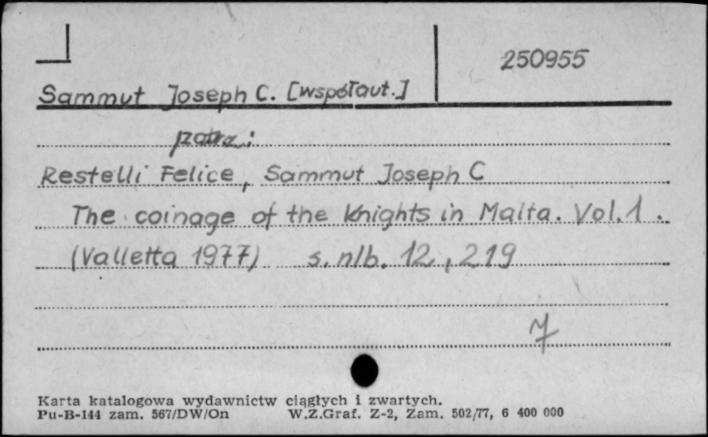 250955
Sammut Joseph C. [współaut.]
patrz:
Restelli Felice, Sammut Joseph C
The coinage of the Knights in Malta. Vol. 1.
(Valletta 1977) s. nlb. 12, 219
Karta katalogowa wydawnictw ciągłych i zwartych.
Pu-B-144 zam. 567/DW/On W.Z.Graf. Z-2, Zam. 502/77, 6 400 000